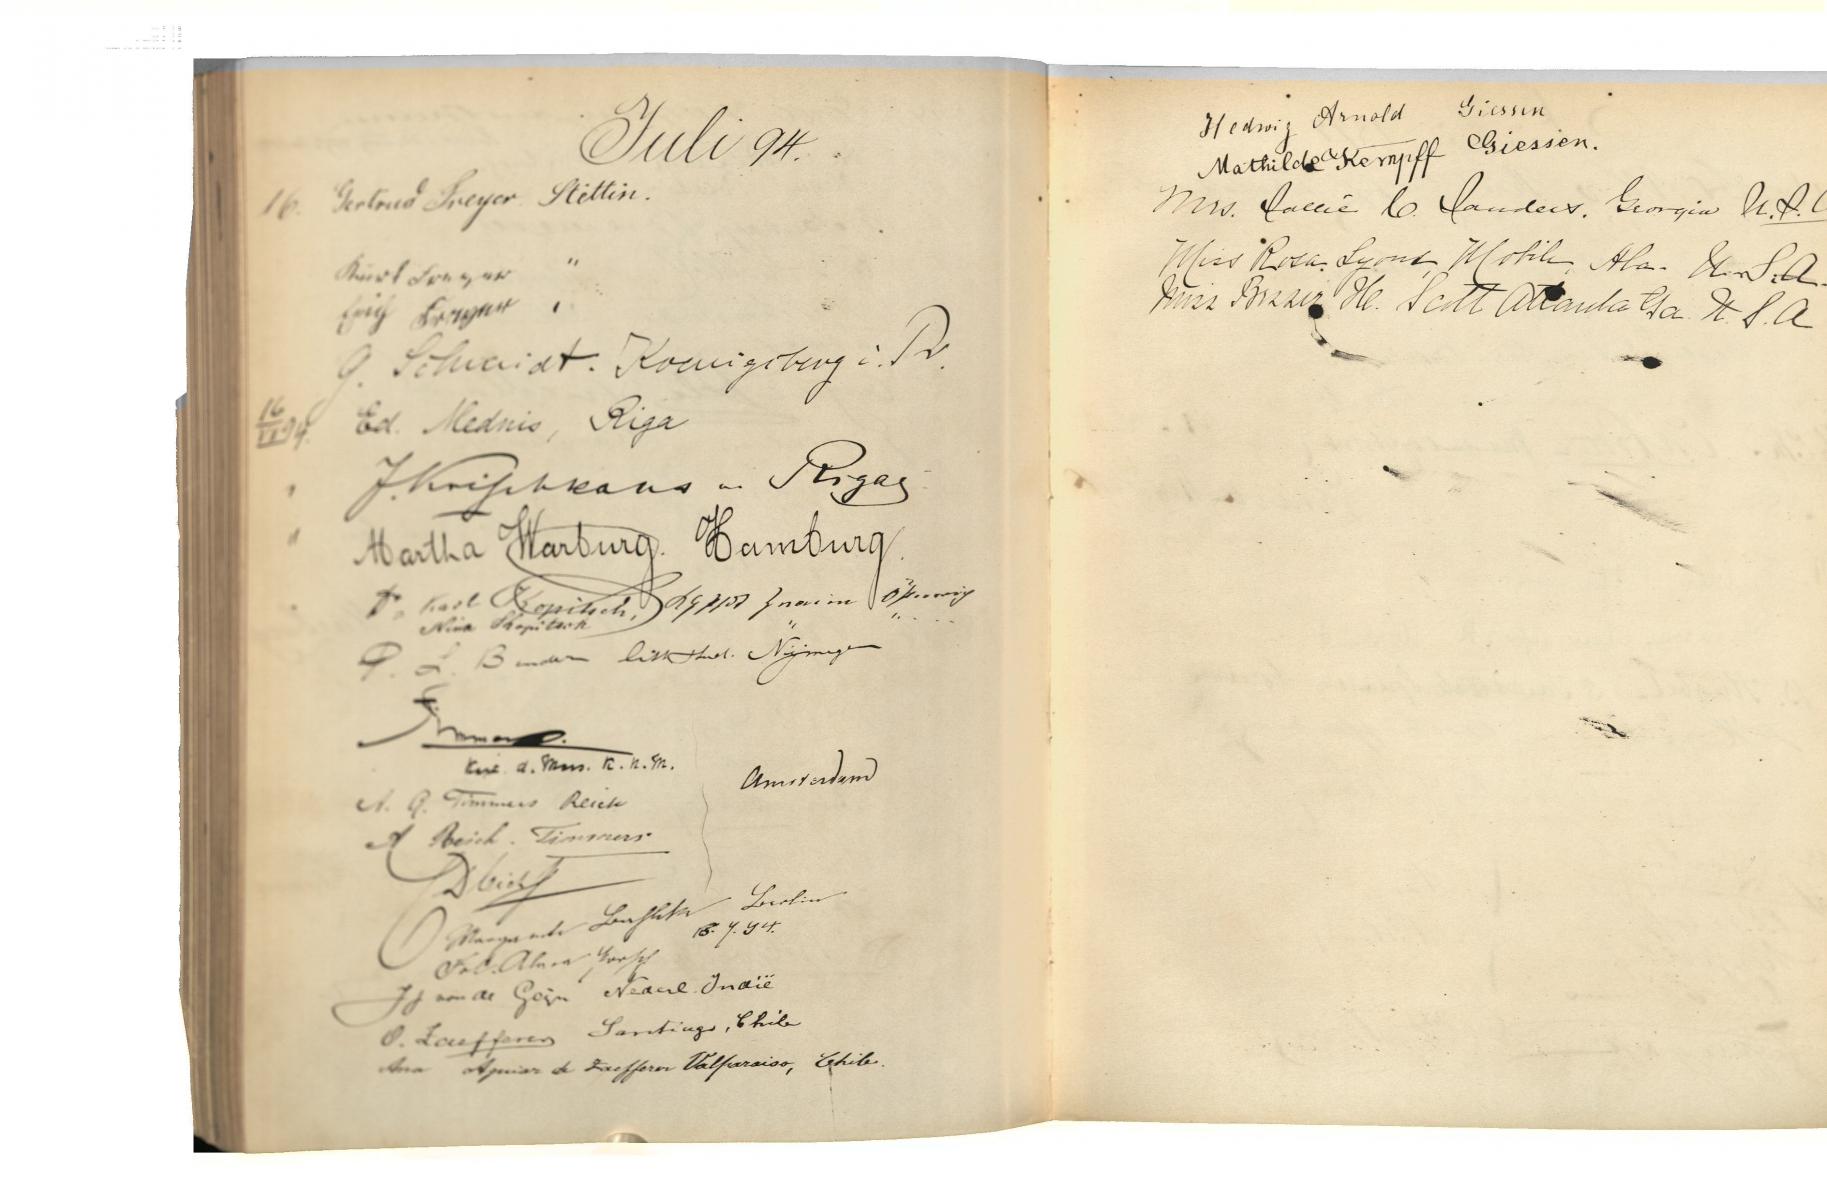 Juli 94.
16. Gertrud Freyer Stettin.
Kurt Freyer "
Erich Freyer "
G. Schmidt. Koenigsberg i. Pr.
16/VII 94. Ed. Mednis, Riga
" J. Krischkans Riga
" Martha Warburg. Hamburg.
Dr. Karl Kopitsch, Znaim
Nina Kopitsch " "
P. L. Nijmegen
d. Mar. K. N. M.
Amsterdam
A. G. Timmers Reich
A Reich. Timmers
Berlin
16.7.94.
Frl. Alma
van de Geijn Nederl. Indië
O. Zaefferer Santiago, Chile
Ana Aguiar de Zaefferer Valparaiso, Chile.
Hedwig Arnold Giessen
Mathilde Kempff Giessen.
Mrs. Sallie C. Sanders. Georgia U.S.A
Miss Rosa Lyons, Mobile, Ala. U.S.A.
Miss H. Scott Atlanta Ga. U.S.A